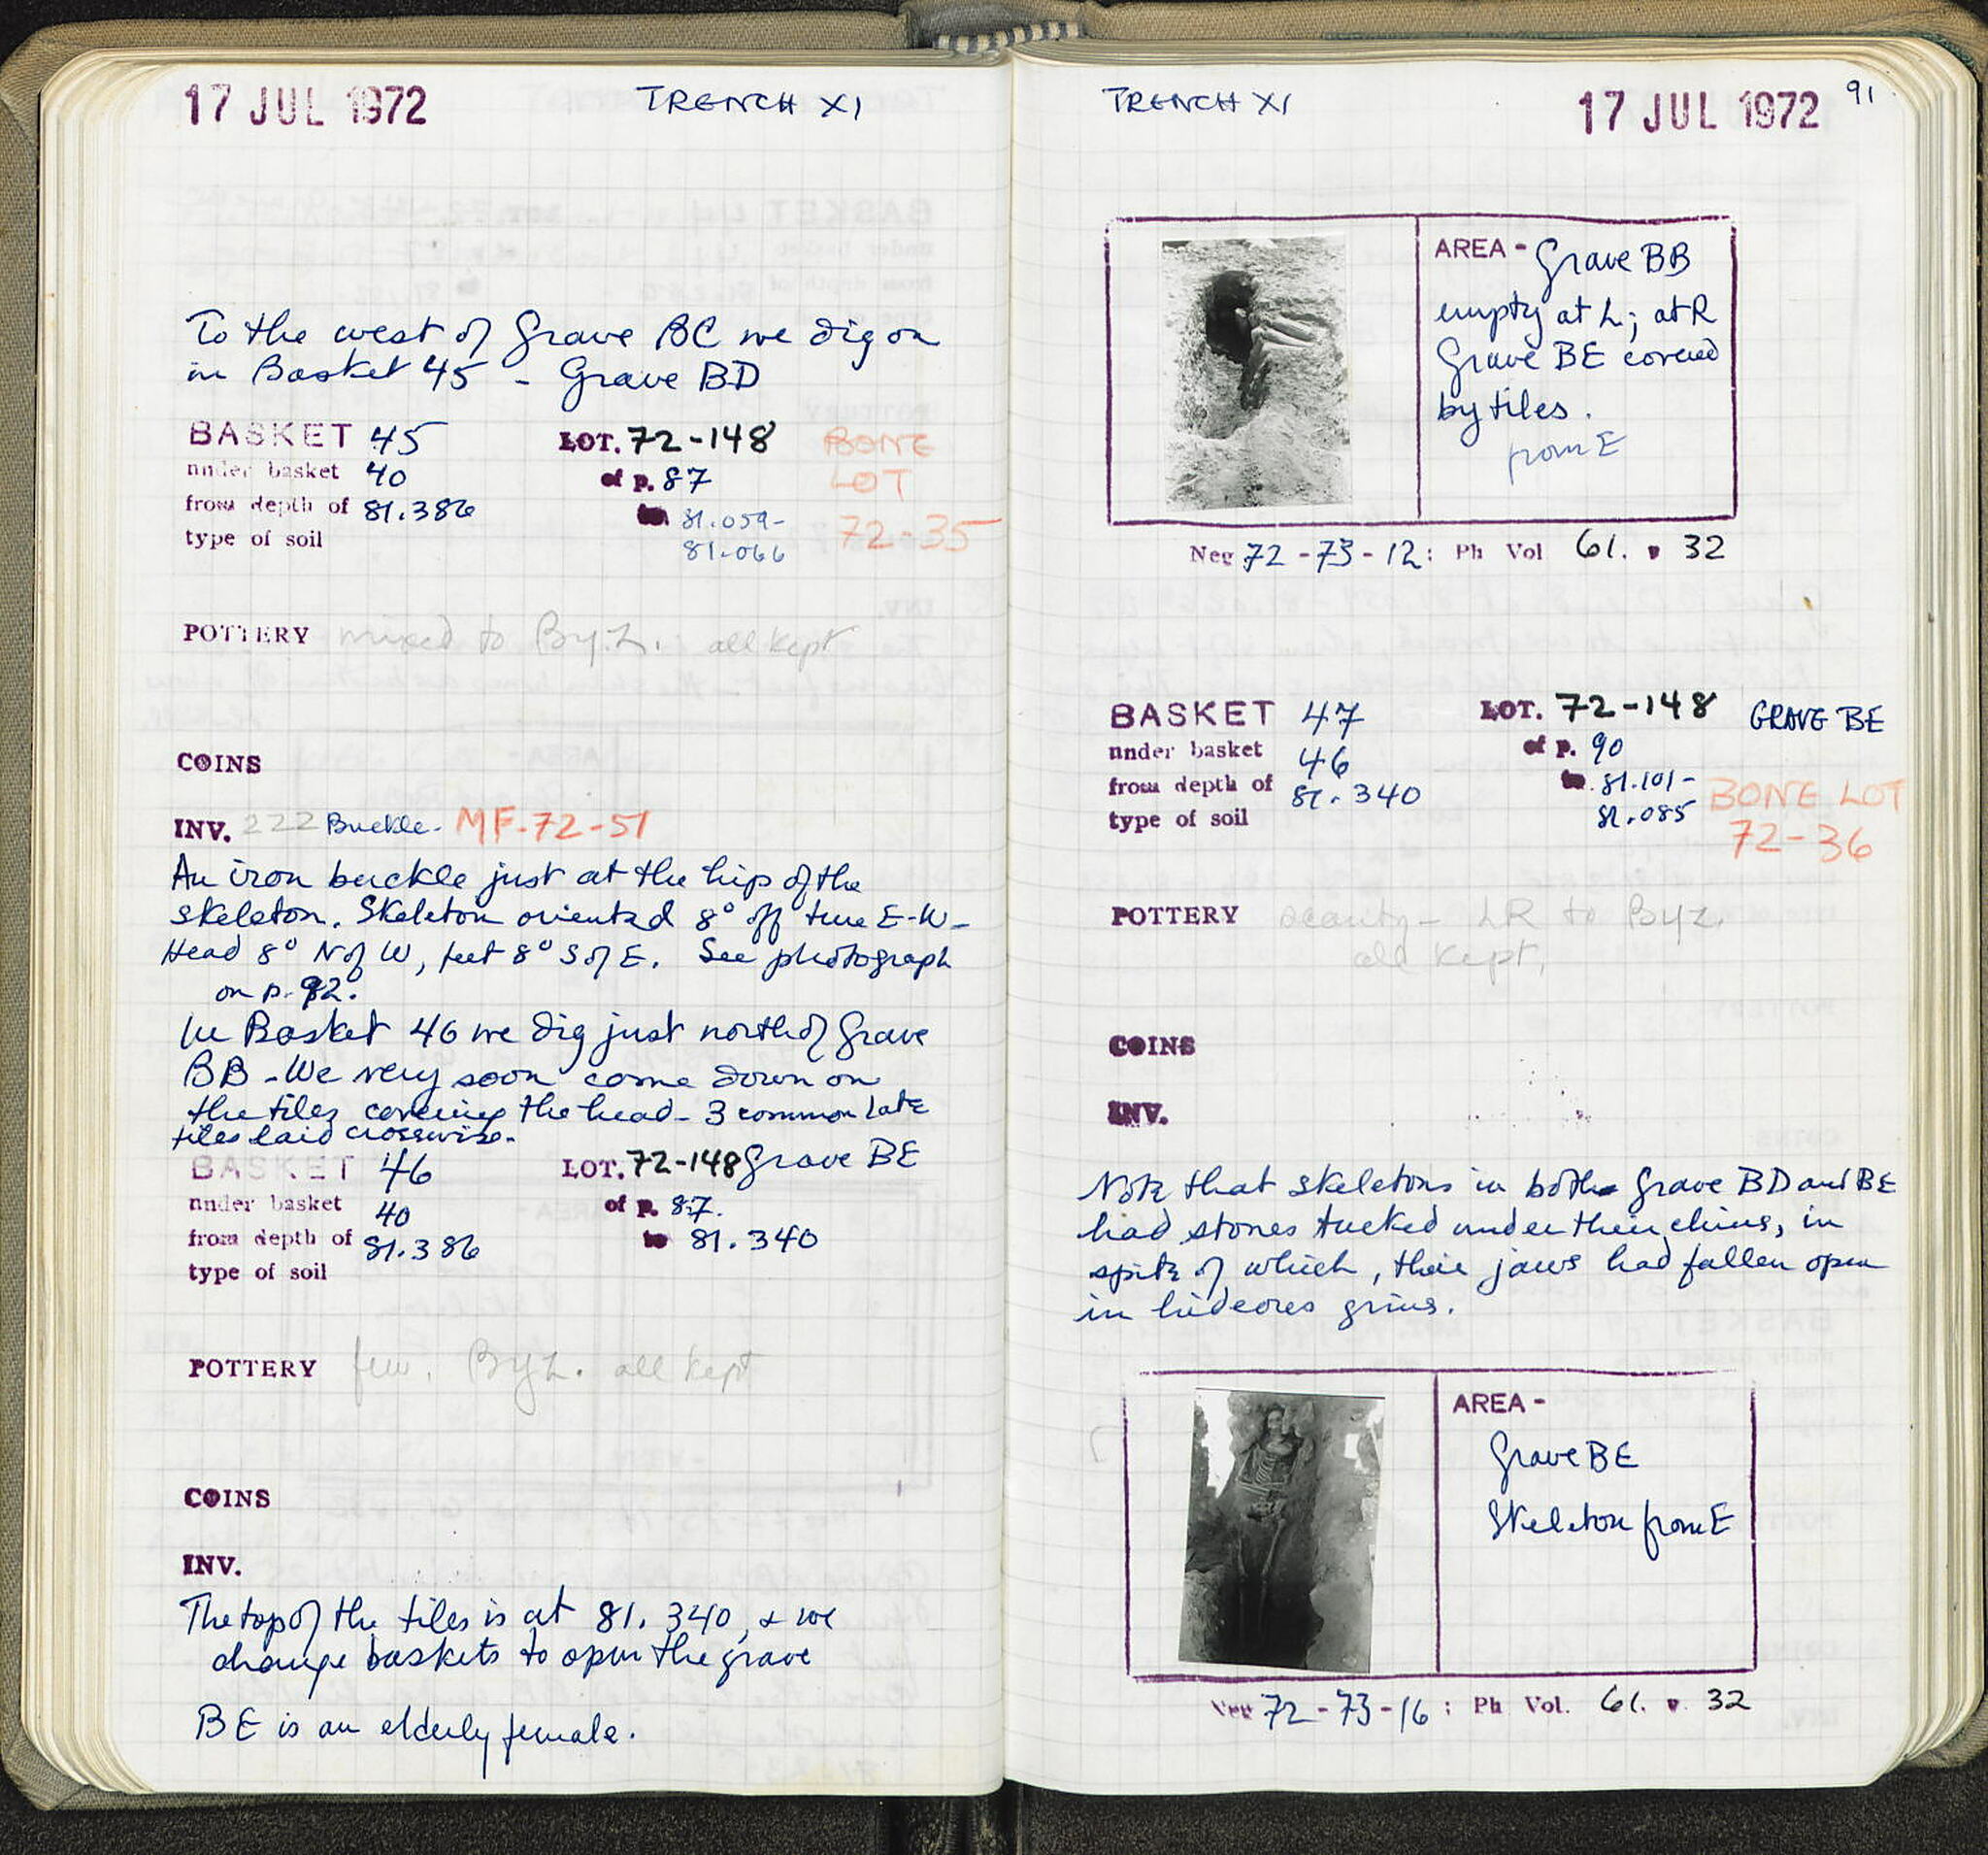 17 JUL 1972 TRENCH XI
To the west of Grave BC we dig on
in Basket 45 - Grave BD
BASKET 45 LOT. 72-148 BONE
under basket 40 of p. 87 LOT
from depth of 81.386 to 81.059- 72-35
type of soil 81.066
POTTERY mixed to Byz. all kept
COINS
INV. 222 Buckle. MF-72-51
An iron buckle just at the hip of the
skeleton. Skeleton oriented 8° off true E-W-
Head 8° N of W, feet 8° S of E. See photograph
on p. 92.
In Basket 46 we dig just north of Grave
BB - We very soon come down on
the tiles covering the head - 3 common late
tiles laid crosswise.
BASKET 46 LOT. 72-148 Grave BE
under basket 40 of p. 87.
from depth of 81.386 to 81.340
type of soil
POTTERY few. Byz. all kept
COINS
INV.
The top of the tiles is at 81.340, & we
change baskets to open the grave
BE is an elderly female.
TRENCH XI 17 JUL 1972 91
AREA - Grave BB
empty at L; at R
Grave BE covered
by tiles.
from E
Neg 72-73-12: Ph Vol 61. p 32
BASKET 47 LOT. 72-148 GRAVE BE
under basket 46 of p. 90
from depth of 81.340 to 81.101- BONE LOT
type of soil 81.085 72-36
POTTERY scanty - LR to Byz.
all kept.
COINS
INV.
Note that skeletons in both Grave BD and BE
had stones tucked under their chins, in
spite of which, their jaws had fallen open
in hideous grins.
AREA -
Grave BE
Skeleton from E
Neg 72-73-16: Ph Vol. 61. p 32